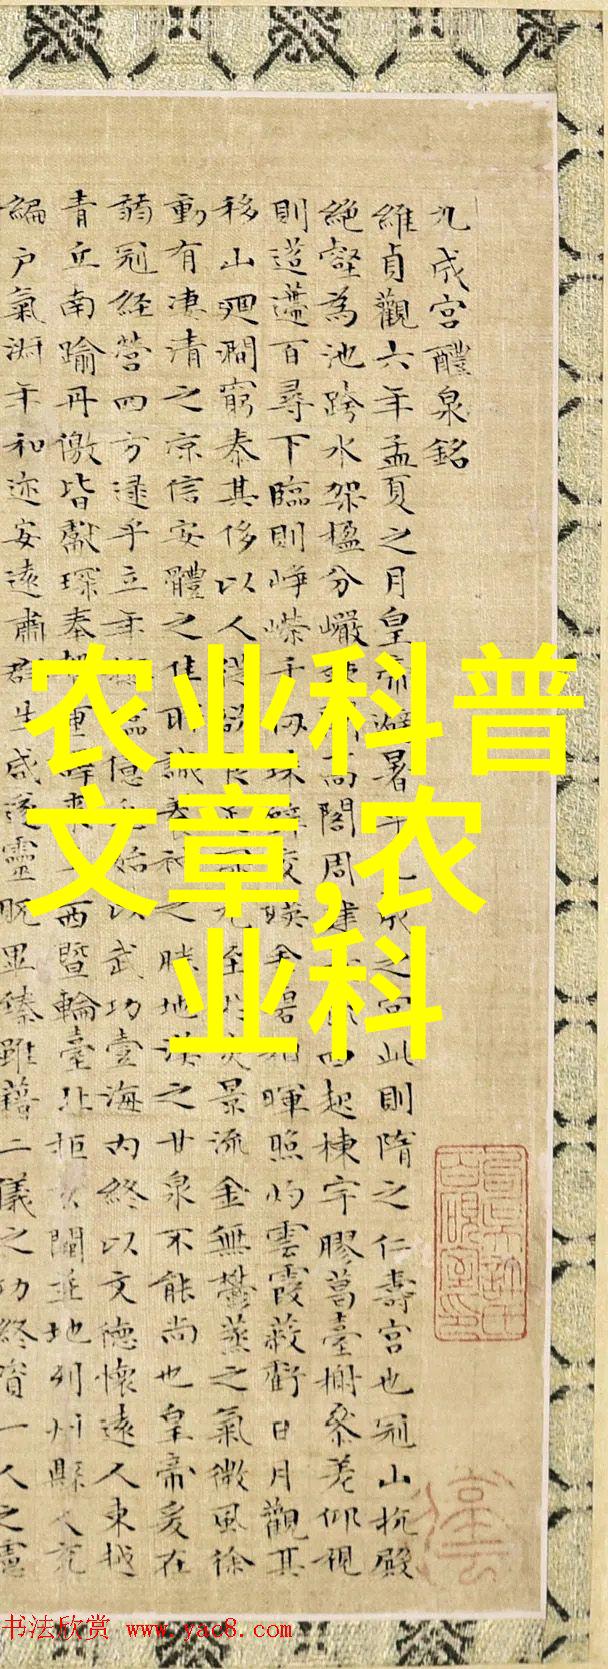 九成宮醴泉銘
維貞觀六年孟夏之月皇帝避暑乎九成之宮此則隋之仁壽宮也冠山抗殿
絕壑為池跨水架楹分巖竦高閣周建四起棟宇膠葛臺榭參差仰視
則迢遰百尋下臨則崢嶸千仞珠璧交暎金碧相暉照灼雲霞蔽虧日月觀其
移山迴澗窮泰其侈以人從欲良足尤至於炎景流金無鬱蒸之氣微風徐
動有凄清之凉信安體之佳所誠養神之勝地漢之甘泉不能尚也皇帝爰在
弱冠經營四方逮乎立年臨億始以武功壹海內終以文德懷遠人東越
青丘南踰丹徼皆獻琛奉重譯來西暨輪臺北拒玄闕並地列州縣人充
編戶氣淑年和迩安遠肅群生咸遂靈貺畢臻雖藉二儀之功終資一人之慮
农业科普
文章,农
业科
书法欣赏 www.yac8.com